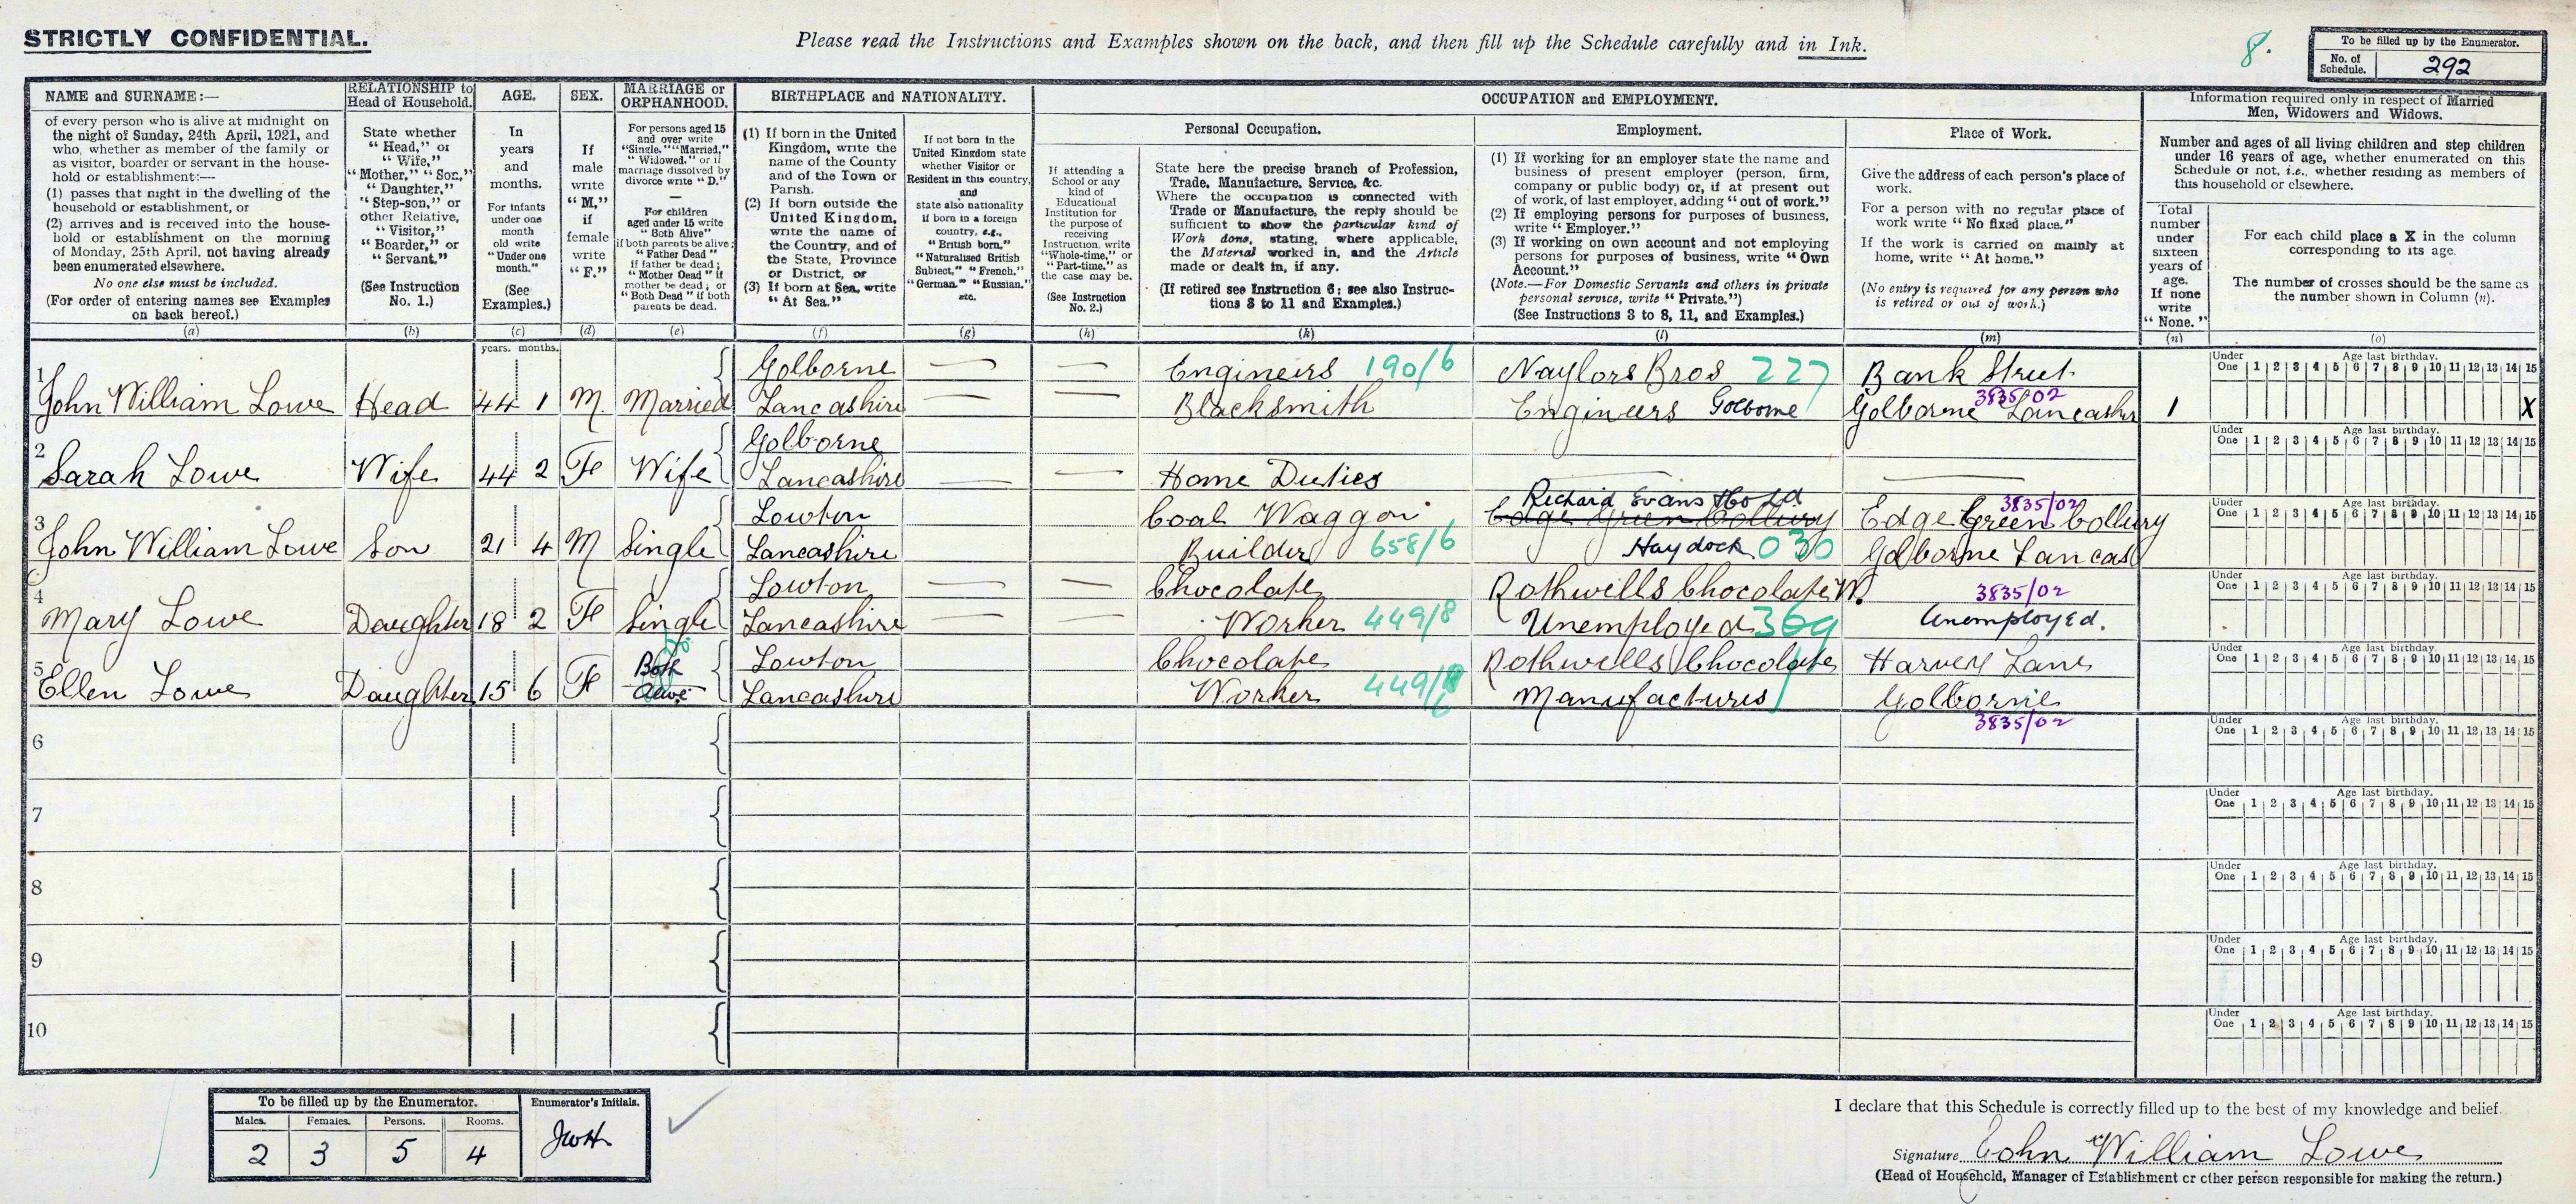 STRICTLY CONFIDENTIAL.
Please read the Instructions and Examples shown on the back, and then fill up the Schedule carefully and in Ink.
8.
To be filled up by the Enumerator.
No. of Schedule. 292
NAME and SURNAME:—
of every person who is alive at midnight on
the night of Sunday, 24th April, 1921, and
who, whether as member of the family or
as visitor, boarder or servant in the house-
hold or establishment:—
(1) passes that night in the dwelling of the
household or establishment, or
(2) arrives and is received into the house-
hold or establishment on the morning
of Monday, 25th April, not having already
been enumerated elsewhere.
No one else must be included.
(For order of entering names see Examples
on back hereof.)
(a)
RELATIONSHIP to
Head of Household.
State whether
"Head," or
"Wife,"
"Mother," "Son,"
"Daughter,"
"Step-son," or
other Relative,
"Visitor,"
"Boarder," or
"Servant."
(See Instruction
No. 1.)
(b)
AGE.
In
years
and
months.
For infants
under one
month
old write
"Under one
month."
(See
Examples.)
(c)
SEX.
If
male
write
"M,"
if
female
write
"F."
(d)
MARRIAGE or
ORPHANHOOD.
For persons aged 15
and over write
"Single," "Married,"
"Widowed," or if
marriage dissolved by
divorce write "D."
—
For children
aged under 15 write
"Both Alive"
if both parents be alive;
"Father Dead"
if father be dead;
"Mother Dead" if
mother be dead; or
"Both Dead" if both
parents be dead.
(e)
BIRTHPLACE and NATIONALITY.
(1) If born in the United
Kingdom, write the
name of the County
and of the Town or
Parish.
(2) If born outside the
United Kingdom,
write the name of
the Country, and of
the State, Province
or District, or
(3) If born at Sea, write
"At Sea."
(f)
If not born in the
United Kingdom state
whether Visitor or
Resident in this country,
and
state also nationality
if born in a foreign
country, e.g.,
"British born,"
"Naturalised British
Subject," "French,"
"German," "Russian,"
etc.
(g)
OCCUPATION and EMPLOYMENT.
Personal Occupation.
If attending a
School or any
kind of
Educational
Institution for
the purpose of
receiving
Instruction, write
"Whole-time," or
"Part-time," as
the case may be.
(See Instruction
No. 2.)
(h)
State here the precise branch of Profession,
Trade, Manufacture, Service, &c.
Where the occupation is connected with
Trade or Manufacture, the reply should be
sufficient to show the particular kind of
Work done, stating, where applicable,
the Material worked in, and the Article
made or dealt in, if any.
(If retired see Instruction 6; see also Instruc-
tions 3 to 11 and Examples.)
(k)
Employment.
(1) If working for an employer state the name and
business of present employer (person, firm,
company or public body) or, if at present out
of work, of last employer, adding "out of work."
(2) If employing persons for purposes of business,
write "Employer."
(3) If working on own account and not employing
persons for purposes of business, write "Own
Account."
(Note.—For Domestic Servants and others in private
personal service, write "Private.")
(See Instructions 3 to 8, 11, and Examples.)
(l)
Place of Work.
Give the address of each person's place of
work.
For a person with no regular place of
work write "No fixed place."
If the work is carried on mainly at
home, write "At home."
(No entry is required for any person who
is retired or out of work.)
(m)
Information required only in respect of Married
Men, Widowers and Widows.
Number and ages of all living children and step children
under 16 years of age, whether enumerated on this
Schedule or not, i.e., whether residing as members of
this household or elsewhere.
Total
number
under
sixteen
years of
age.
If none
write
"None."
(n)
For each child place a X in the column
corresponding to its age.
The number of crosses should be the same as
the number shown in Column (n).
(o)
years. months.
1
Golborne — — Engineers 190/6 Naylors Bros 227 Bank Street
3835/02
John William Lowe Head 44 1 M. Married Lancashire — — Blacksmith Engineers Golborne Golborne Lancashire 1 X
Under One 1 2 3 4 5 6 7 8 9 10 11 12 13 14 15
Age last birthday.
2
Golborne
Sarah Lowe Wife 44 2 Fe Wife Lancashire — — Home Duties — —
Under One 1 2 3 4 5 6 7 8 9 10 11 12 13 14 15
Age last birthday.
3
Richard Evans & Co Ld 3835/02
Lowton Coal Waggon Edge Green Collury Edge Green Collury
John William Lowe Son 21 4 M Single Lancashire Builder 658/6 Haydock 030 Golborne Lancas
Under One 1 2 3 4 5 6 7 8 9 10 11 12 13 14 15
Age last birthday.
4
Lowton — — Chocolate Rothwells Chocolate W. 3835/02
Mary Lowe Daughter 18 2 Fe Single Lancashire — — Worker 449/8 Unemployed 369 Unemployed.
Under One 1 2 3 4 5 6 7 8 9 10 11 12 13 14 15
Age last birthday.
5
Both Lowton Chocolate Rothwells Chocolate Harvey Lane
Ellen Lowe Daughter 15 6 Fe Alive Lancashire Worker 449/6 Manufactures Golborne
3835/02
Under One 1 2 3 4 5 6 7 8 9 10 11 12 13 14 15
Age last birthday.
6
Under One 1 2 3 4 5 6 7 8 9 10 11 12 13 14 15
Age last birthday.
7
Under One 1 2 3 4 5 6 7 8 9 10 11 12 13 14 15
Age last birthday.
8
Under One 1 2 3 4 5 6 7 8 9 10 11 12 13 14 15
Age last birthday.
9
Under One 1 2 3 4 5 6 7 8 9 10 11 12 13 14 15
Age last birthday.
10
Under One 1 2 3 4 5 6 7 8 9 10 11 12 13 14 15
Age last birthday.
To be filled up by the Enumerator.
Males. Females. Persons. Rooms.
2 3 5 4
Enumerator's Initials.
JWH.
I declare that this Schedule is correctly filled up to the best of my knowledge and belief.
Signature John William Lowe
(Head of Household, Manager of Establishment or other person responsible for making the return.)